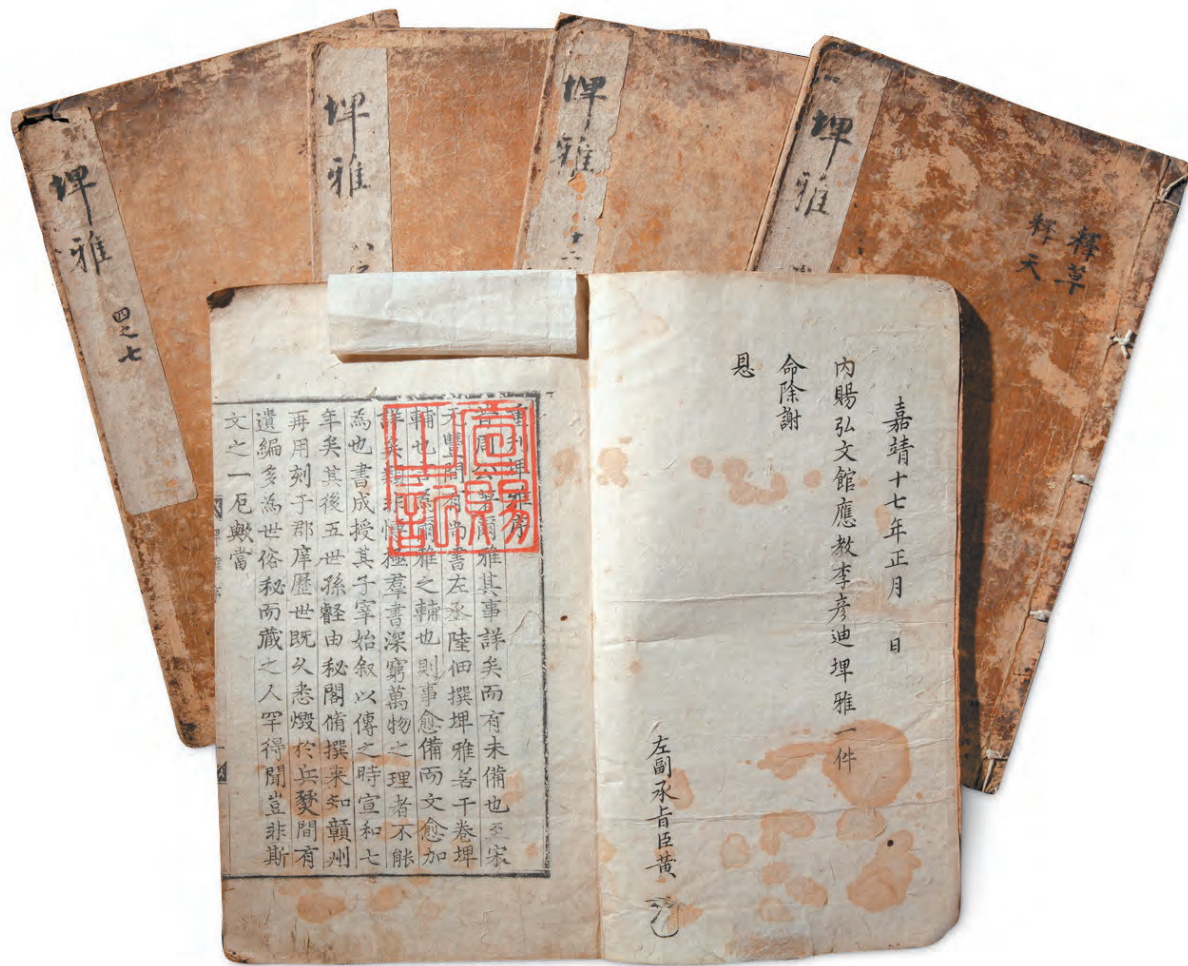 埤雅
四之七
埤雅
八之
埤雅
十二
埤雅
釋草
釋天
嘉靖十七年正月 日
內賜弘文館應教李彦迪埤雅一件
命除謝
恩
左副承旨臣黃
宣賜之記
重刊埤雅序
昔周公著爾雅其事詳矣而有未備也至宋
元豐間尚書左丞陸佃撰埤雅若干卷埤
輔也為爾雅之輔也則事愈備而文愈加
詳矣類非博極羣書深窮萬物之理者不能
為也書成授其子宰始叙以傳之時宣和七
年矣其後五世孫壑由秘閣脩撰来知贛州
再用刻于郡庠歷世既久悉燬於兵燹間有
遺編多為世俗秘而藏之人罕得聞豈非斯
文之一厄歟當